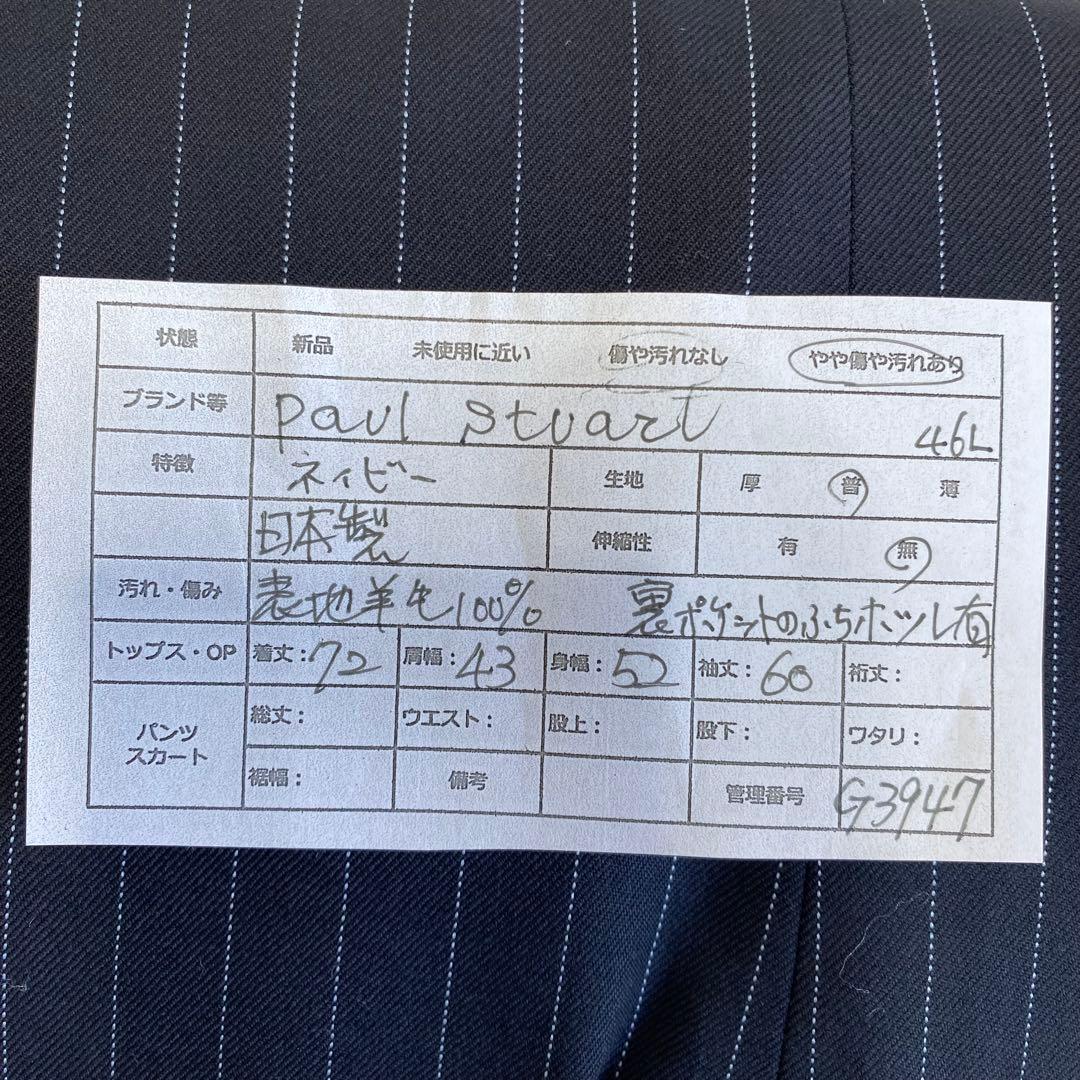 状態 新品 未使用に近い 傷や汚れなし やや傷や汚れあり
ブランド等 Paul Stuart 46L
特徴 ネイビー 生地 厚 普 薄
日本製 伸縮性 有 無
汚れ・傷み 表地羊毛100% 裏ポケットのふちホツレ有
トップス・OP 着丈：72 肩幅：43 身幅：52 袖丈：60 裄丈：
パンツ スカート 総丈： ウエスト： 股上： 股下： ワタリ：
裾幅： 備考 管理番号 G3947